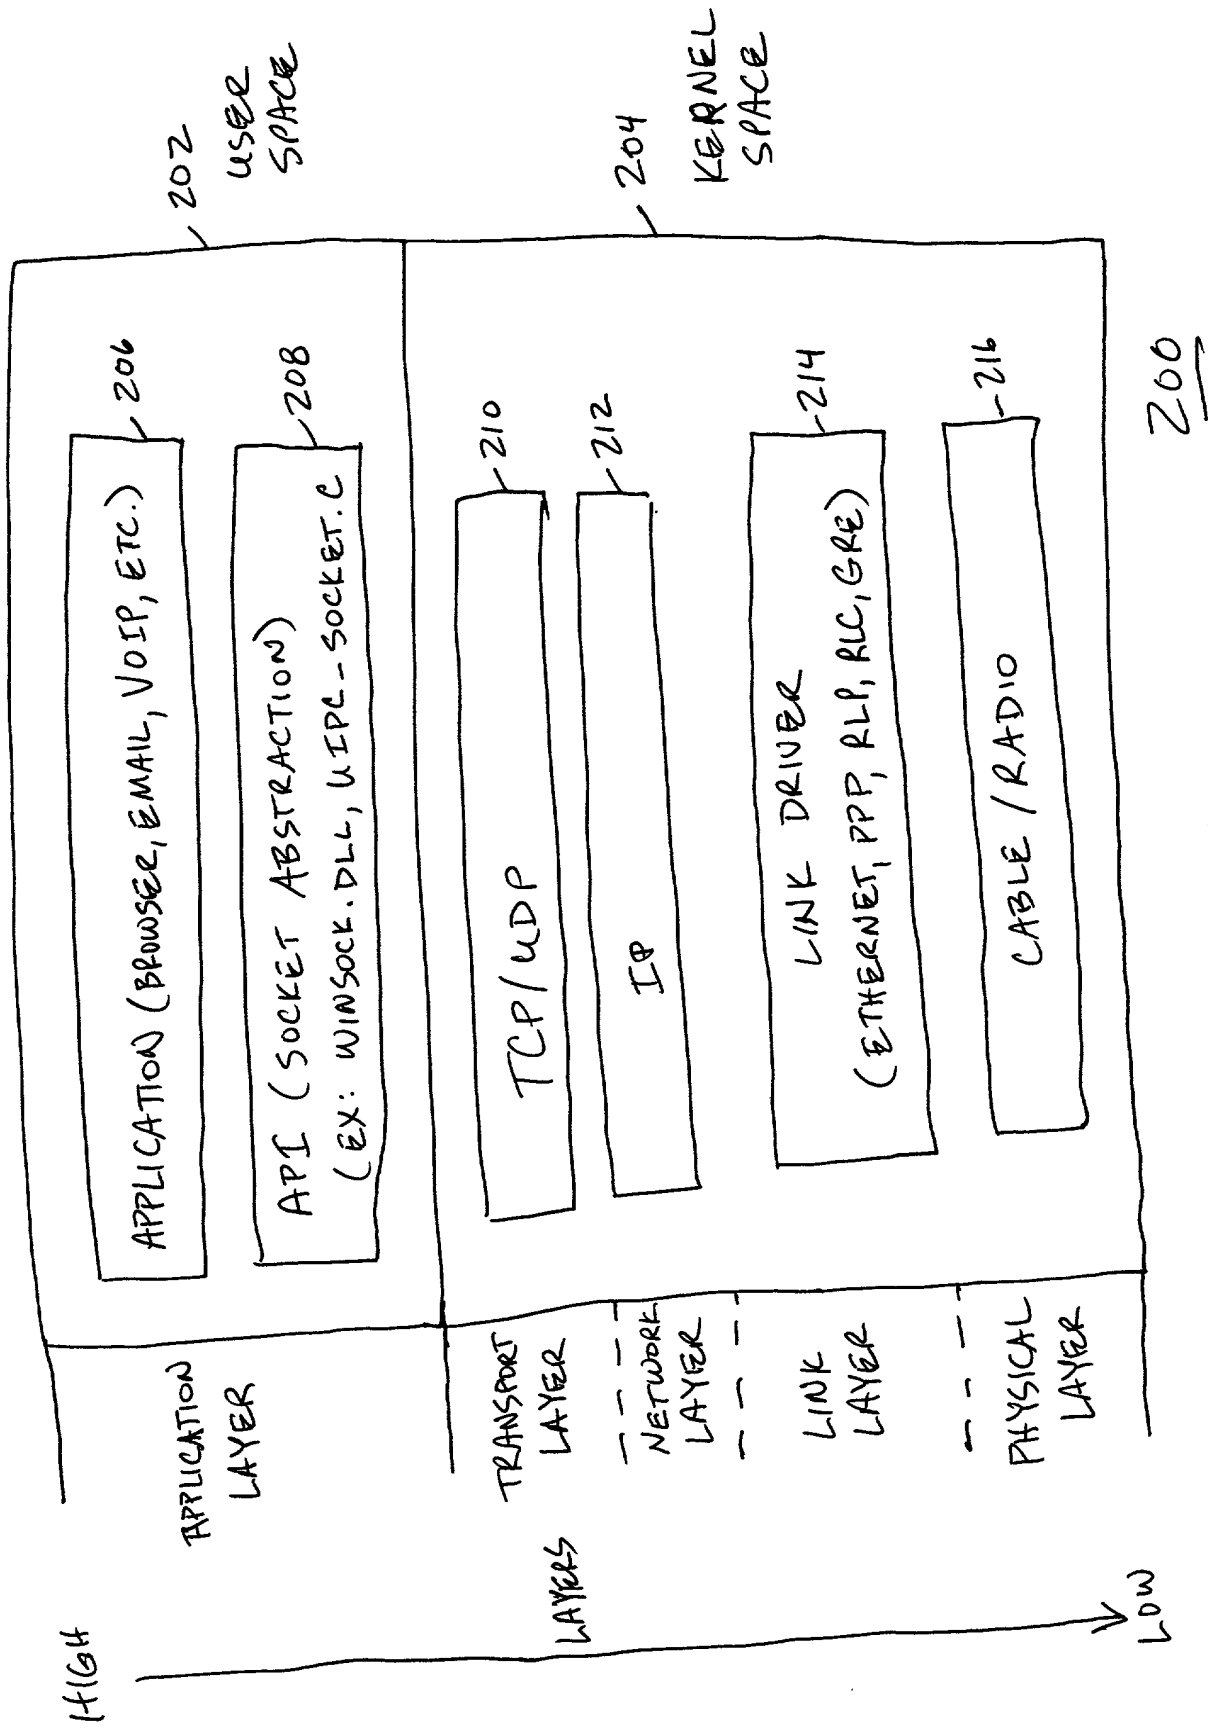 HIGH
LAYERS
LOW
APPLICATION
LAYER
TRANSPORT
LAYER
NETWORK
LAYER
LINK
LAYER
PHYSICAL
LAYER
APPLICATION (BROWSER, EMAIL, VOIP, ETC.)
206
API (SOCKET ABSTRACTION)
(EX: WINSOCK.DLL, UIPC_SOCKET.C
208
202
USER
SPACE
TCP/UDP
210
IP
212
LINK DRIVER
(ETHERNET, PPP, RLP, RLC, GRE)
214
CABLE / RADIO
216
204
KERNEL
SPACE
200